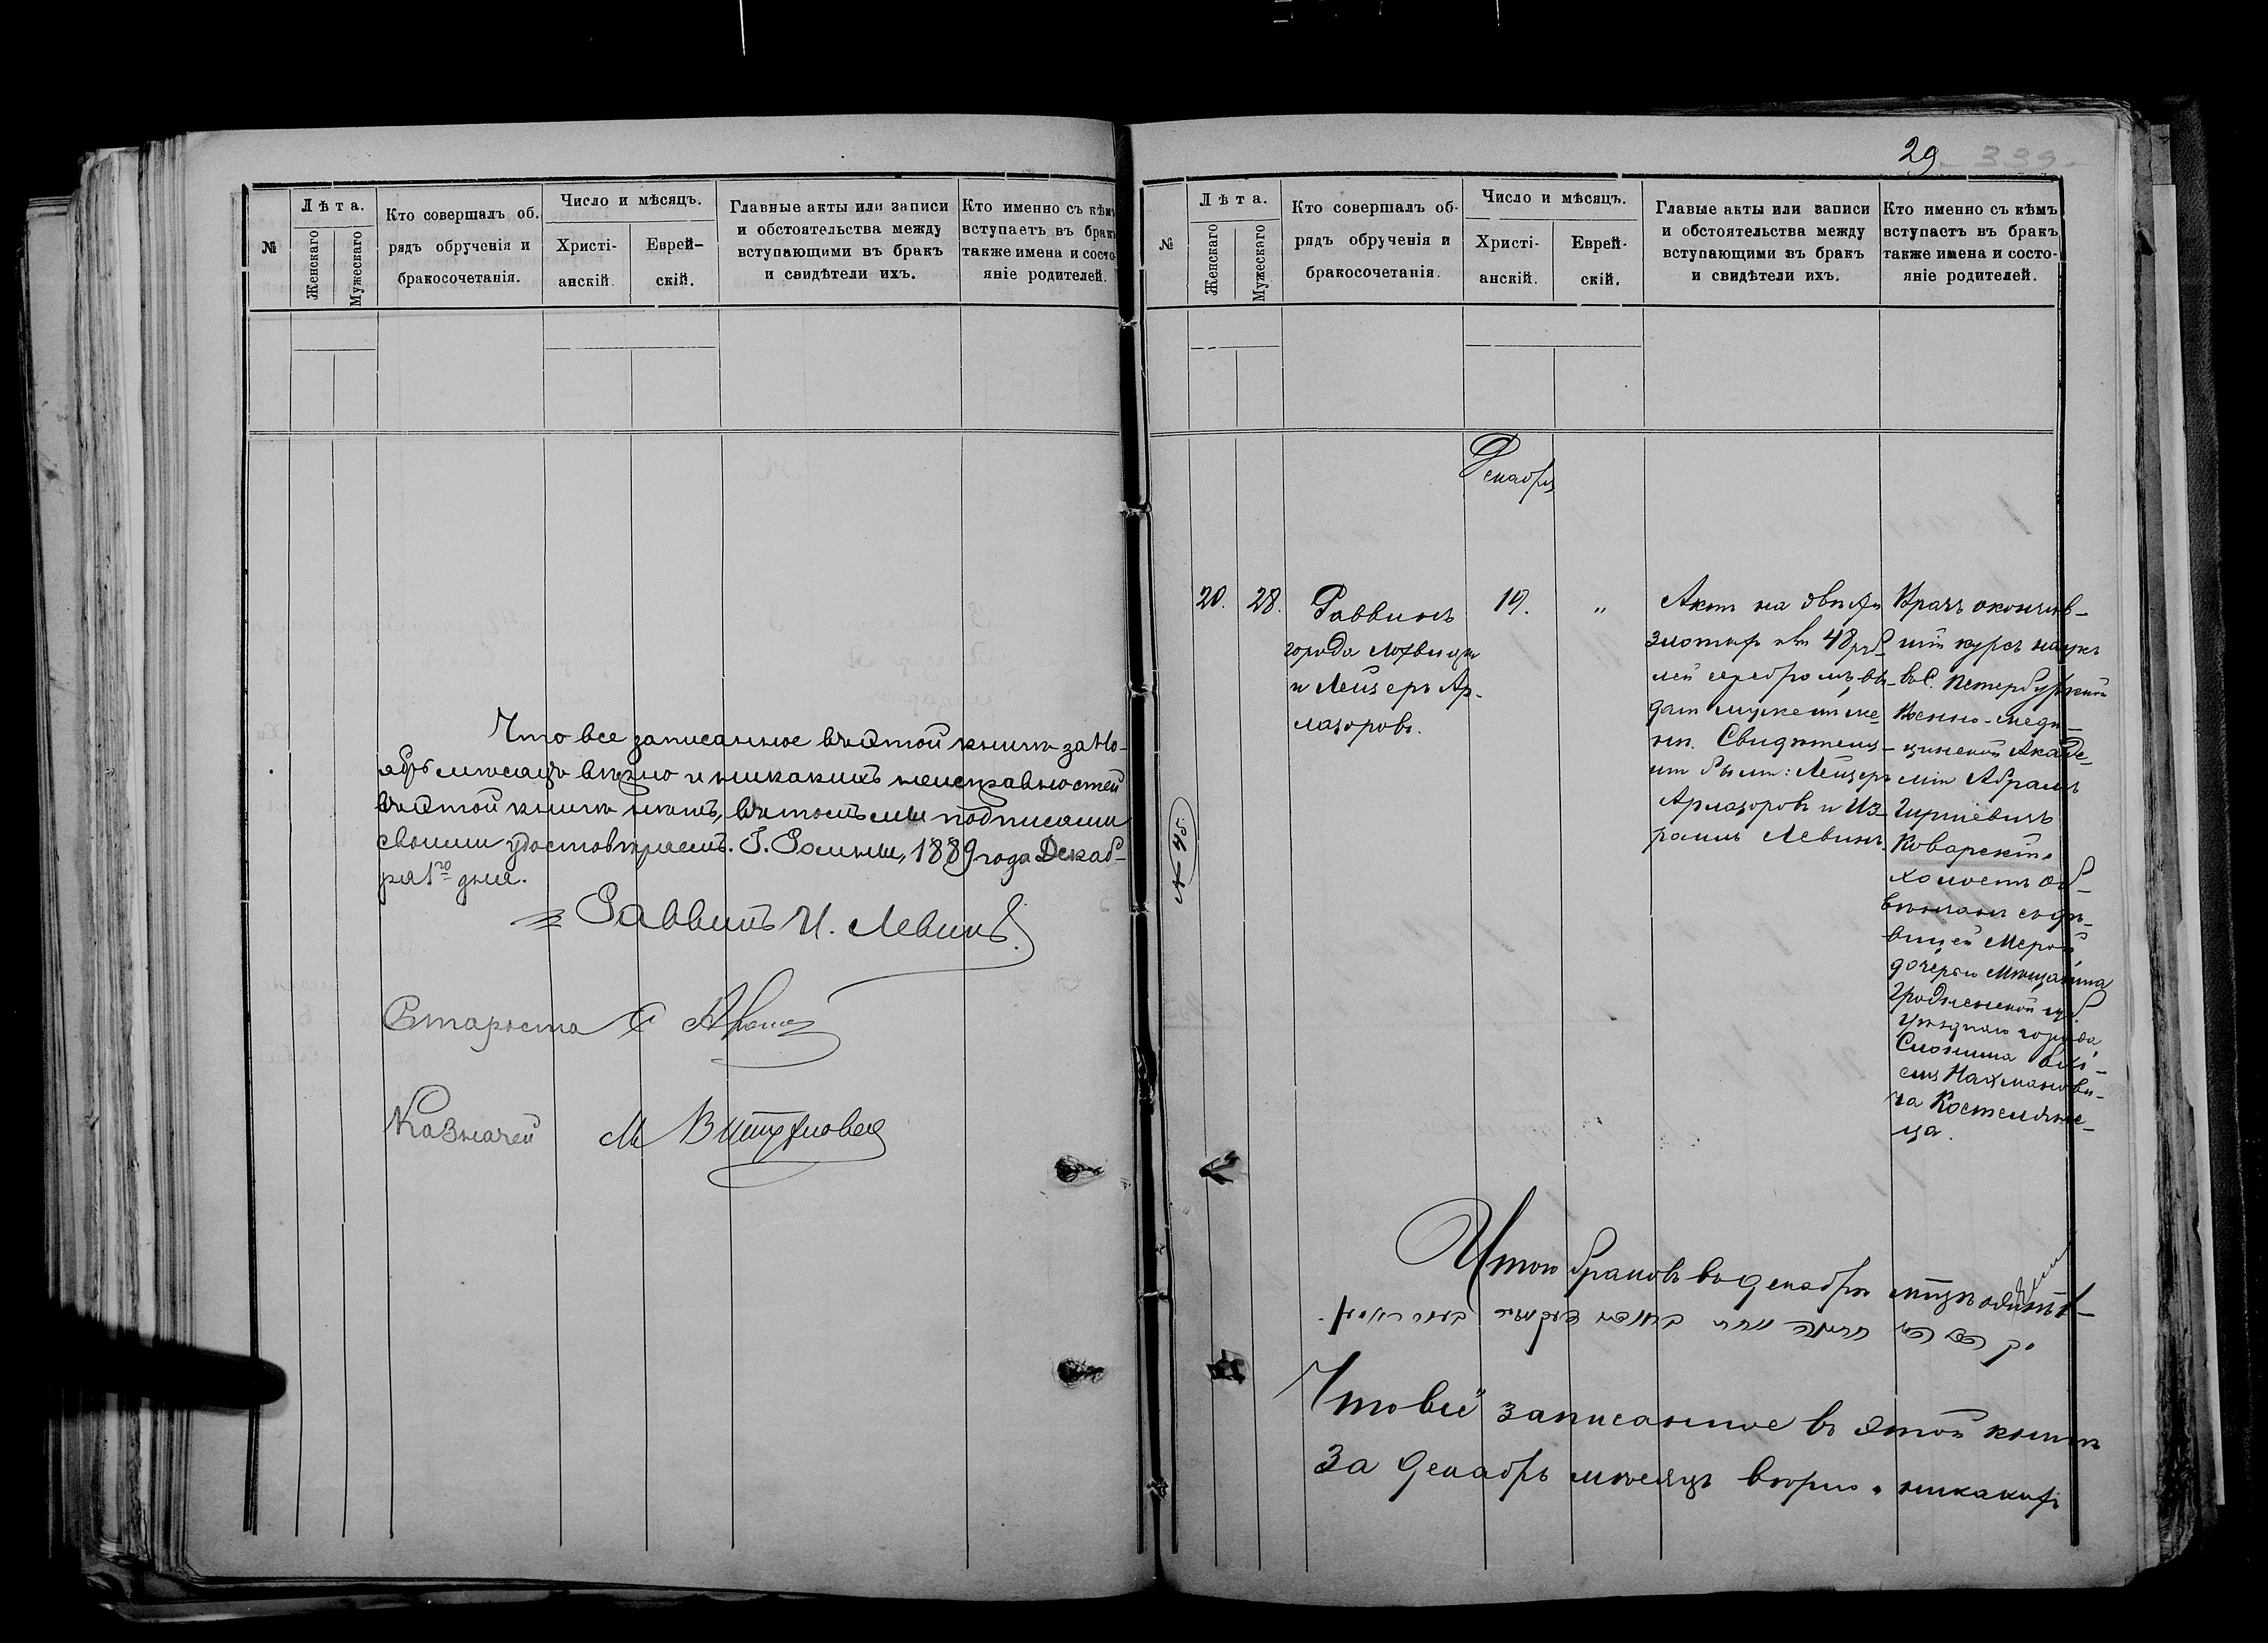 №
Лѣта.
Женскаго
Мужескаго
Кто совершалъ об-
рядъ обрученія и
бракосочетанія.
Число и мѣсяцъ.
Христі-
анскій.
Еврей-
скій.
Главные акты или записи
и обстоятельства между
вступающими въ бракъ
и свидѣтели ихъ.
Кто именно съ кѣмъ
вступаетъ въ бракъ
также имена и состо-
яніе родителей.
Что все записанное въ этой книгѣ за Но-
ябрь мѣсяцъ вѣрно и никакихъ неисправностей
въ этой книгѣ нѣтъ, въ томъ мы подписами
своими удостовѣряемъ. Г. Ромны, 1889 года Декаб-
ря 1го дня.
Раввинъ И. Левинъ
Староста
Казначей М
29 339
№
Лѣта.
Женскаго
Мужескаго
Кто совершалъ об-
рядъ обрученія и
бракосочетанія.
Число и мѣсяцъ.
Христі-
анскій.
Еврей-
скій.
Главые акты или записи
и обстоятельства между
вступающими въ бракъ
и свидѣтели ихъ.
Кто именно съ кѣмъ
вступаетъ въ бракъ
также имена и состо-
яніе родителей.
Декабрь
20.
28.
Раввинъ
города Лохвицы
и Лейзеръ Ар-
лазоровъ.
19.
"
Актъ на двѣсти
злотыхъ или 48 руб-
лей серебромъ вы-
данъ мужемъ же-
нѣ. Свидѣтеля-
ми были: Лейзеръ
Арлазоровъ и Из-
раиль Левинъ.
Врачъ окончив-
шій курсъ наукъ
въ С. Петербургской
Военно-меди-
цинской Акаде-
міи Абрамъ
Гиршевичъ
Коварскій
холостъ об-
вѣнчанъ съ дѣ-
вицей Мерой
дочерью мѣщанина
Гродненской губ
уѣзднаго города
Слонима
Нахманови-
ча Костеляне-
ца.
№ 45
Итого браковъ въ декабрѣ м-цѣ одинъ 1-
Что всё записанное въ этой книгѣ
за декабрь мѣсяцъ вѣрно и никакихъ